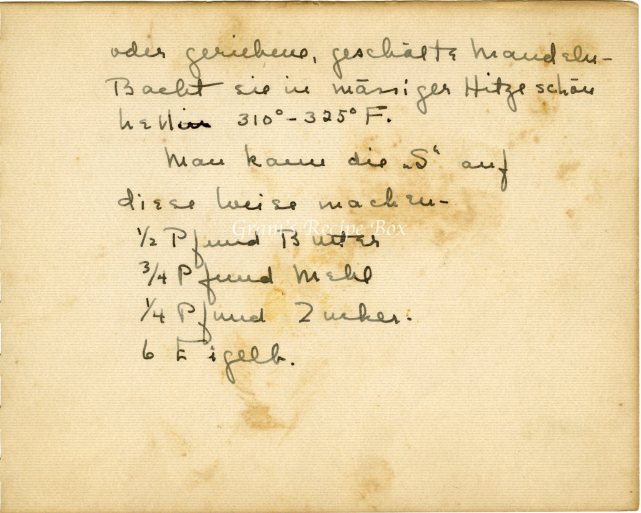 oder geriebene, geschälte Mandeln-
Backt sie in mässiger Hitze schön
hell 310°-325° F.
Man kann die „S“ auf
diese Weise machen-
Gram's Recipe Box
1/2 Pfund Butter
3/4 Pfund Mehl
1/4 Pfund Zucker.
6 Eigelb.